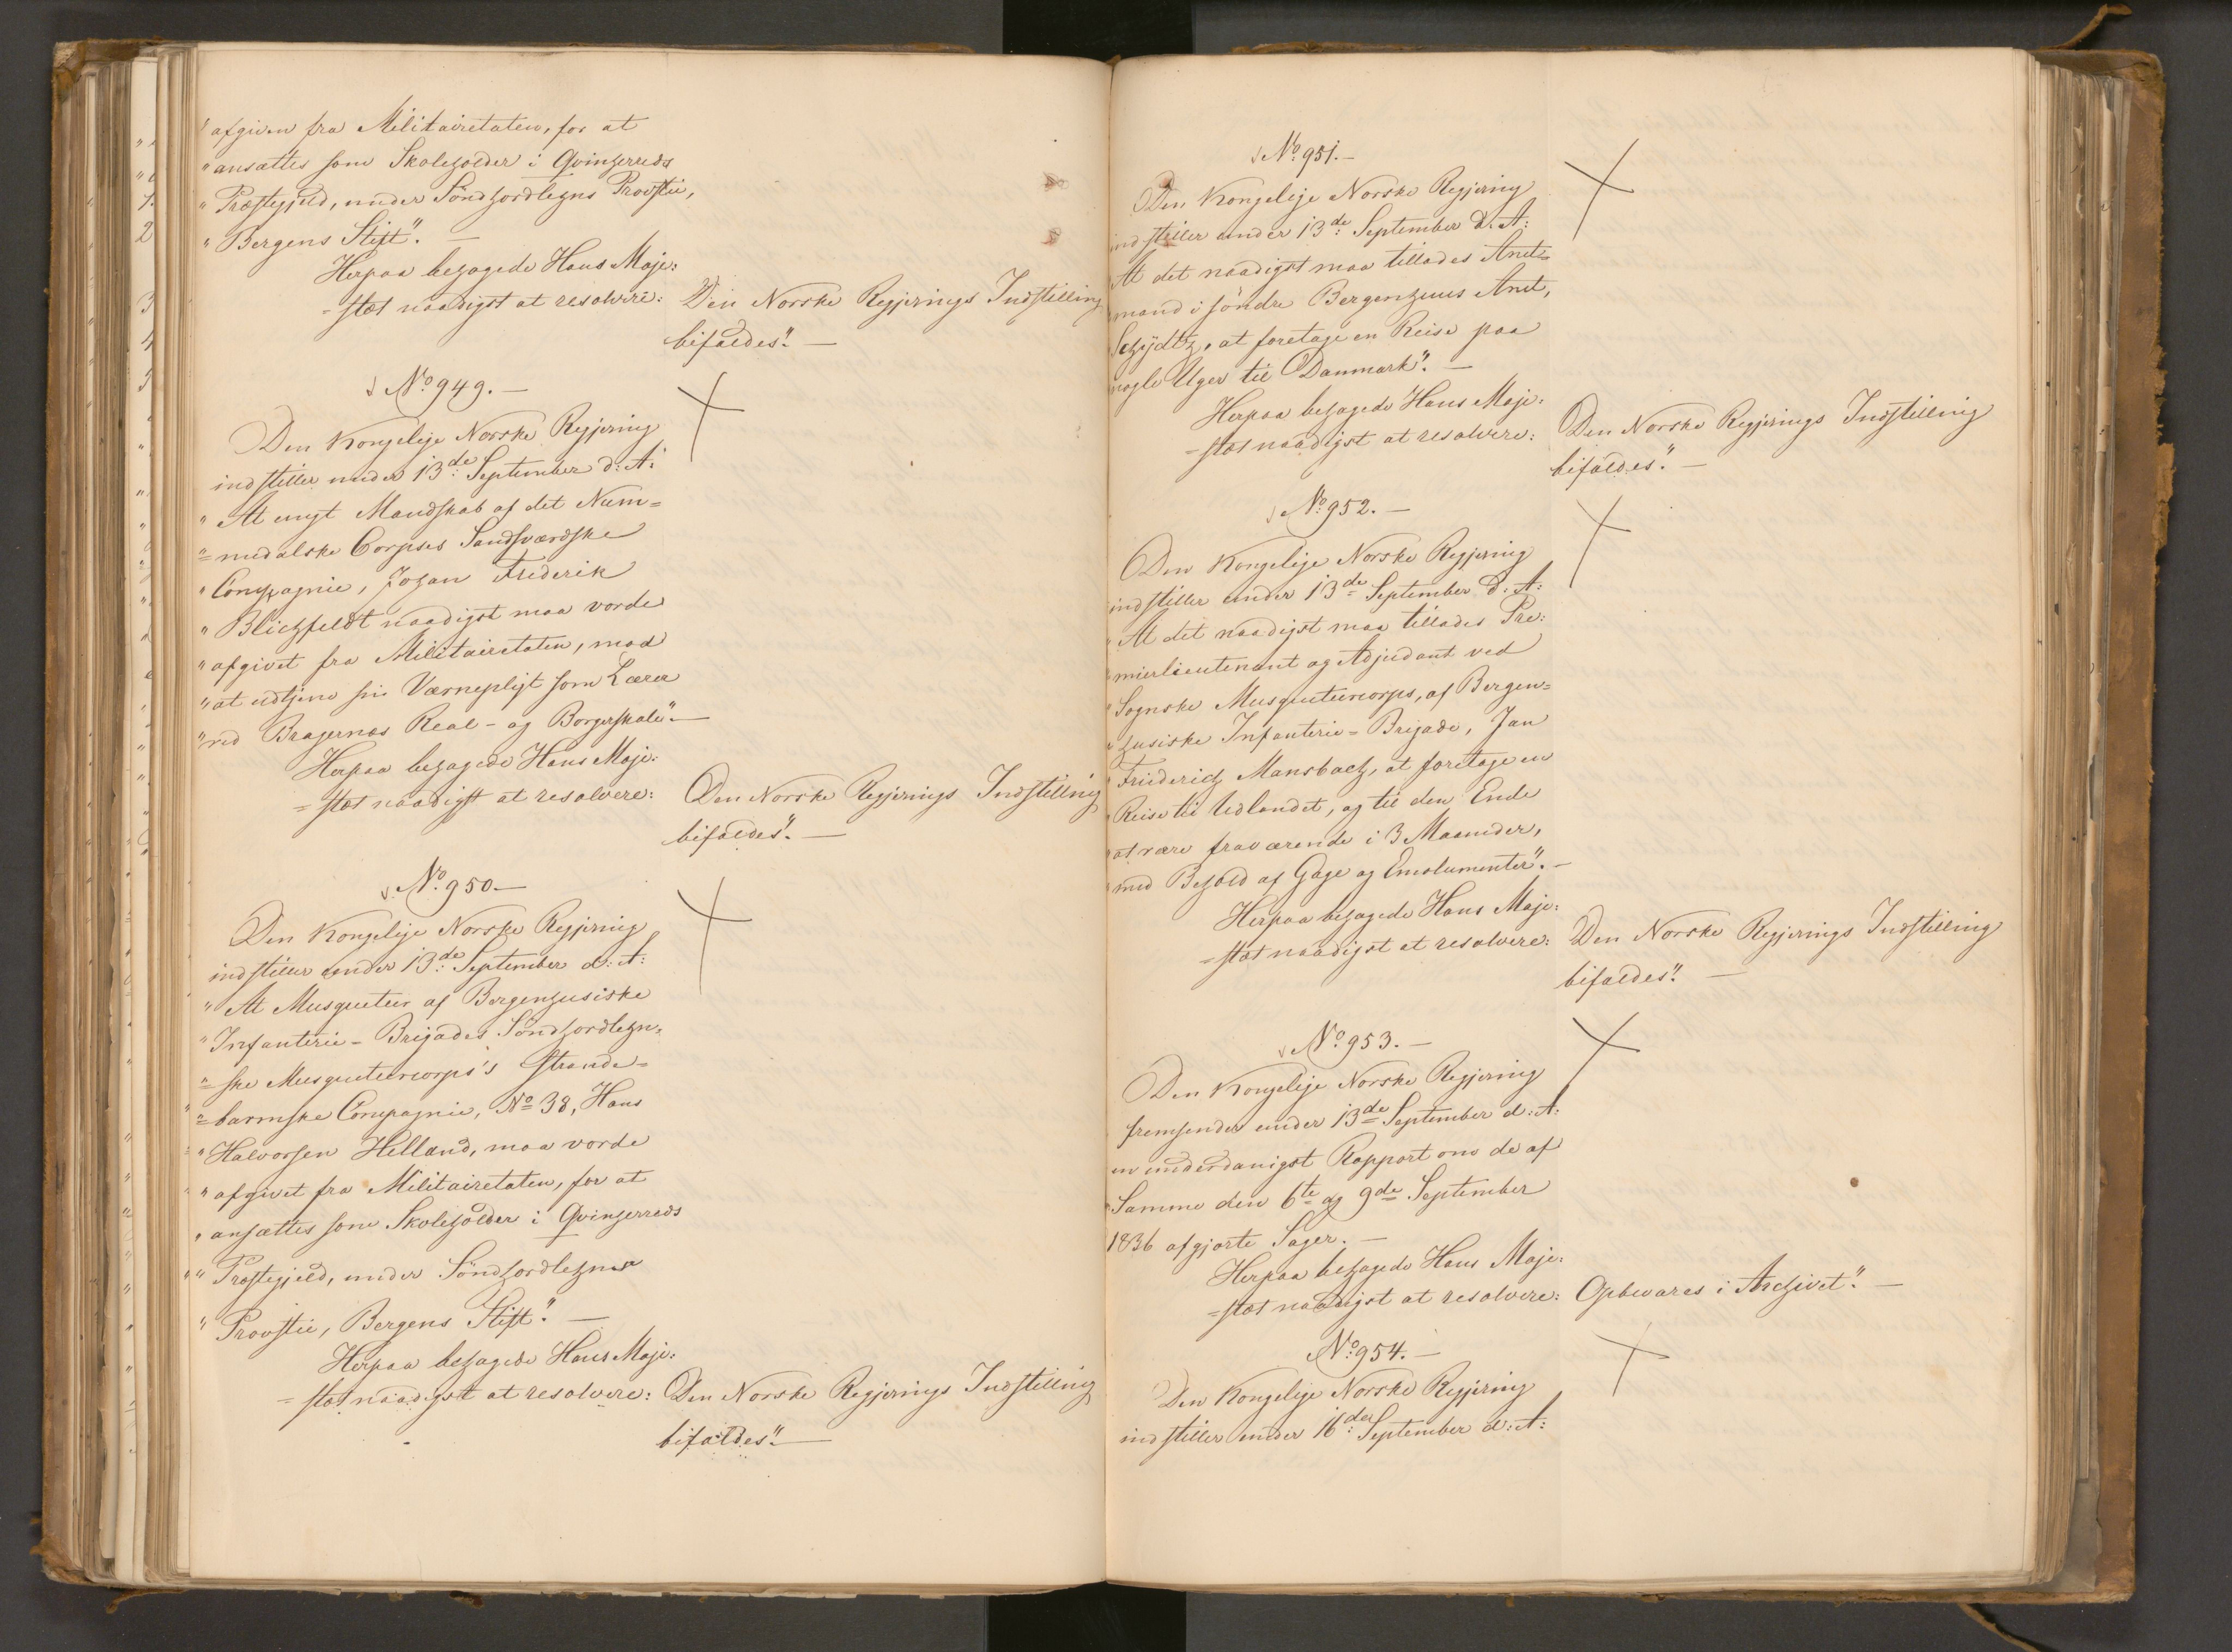 "afgiven fra Militairetaten, for at
"ansættes som Skoleholder i Qvinherreds
"Præstegjeld, under Söndhordlehns Provstie,
"Bergens Stift". —
Herpaa behagede Hans Maje:
=stæt naadigst at resolvere: Den Norske Regjerings Indstilling
bifaldes". —
No 949. —
Den Kongelige Norske Regjering
indstiller under 13de September d: A:
"At nyt Mandskab af det Num=
"=medalske Corpses Sandsværdske
"Compagnie, Johan Frederik
"Blichfeldt naadigst maa vorde
"afgivet fra Militairetaten, mod
"at udtjene sin Værnepligt som Lærer
"ved Bragernæs Real- og Borgerskole". —
Herpaa behagede Hans Maje:
=stæt naadigst at resolvere: Den Norske Regjerings Indstilling
bifaldes". —
No 950. —
Den Kongelige Norske Regjering
indstiller under 13de September d: A:
"At Musqueteer af Bergenhusiske
"Infanterie-Brigades Söndhordlehn=
"=ske Musqueteercorps's Strande=
"=barmske Compagnie, No 38, Hans
"Halvorsen Helland, maa vorde
"afgivet fra Militairetaten, for at
"ansættes som Skoleholder i Qvinherreds
"Præstegjeld, under Söndhordlehns
"Provstie, Bergens Stift". —
Herpaa behagede Hans Maje:
=stæt naadigst at resolvere: Den Norske Regjerings Indstilling
bifaldes". —
No 951. —
Den Kongelige Norske Regjering
indstiller under 13de September d. A:
"At det naadigst maa tillades Amt=
"mand i söndre Bergenhuus Amt,
Schydtz, at foretage en Reise paa
nogle Uger til Danmark". —
Herpaa behagede Hans Maje:
=stæt naadigst at resolvere: Den Norske Regjerings Indstilling
bifaldes". —
No 952. —
Den Kongelige Norske Regjering
indstiller under 13de September d. A:
"At det naadigst maa tillades Pre:
"mierlieutenant og Adjudant ved
"Sognske Musqueteercorps, af Bergen=
"husiske Infanterie-Brigade, Jan
"Friderich Mansbach, at foretage en
"Reise til Udlandet, og til den Ende
"at være fraværende i 3 Maaneder,
"med Behold af Gage og Emolumenter". —
Herpaa behagede Hans Maje:
=stæt naadigst at resolvere: Den Norske Regjerings Indstilling
bifaldes". —
No 953. —
Den Kongelige Norske Regjering
fremsender under 13de September d: A:
en underdanigst Rapport om de af
Samme den 6te og 9de September
1836 afgjorte Sager. —
Herpaa behagede Hans Maje:
=stæt naadigst at resolvere: Opbevares i Archivet". —
No 954. —
Den Kongelige Norske Regjering
indstiller under 16de September d: A: